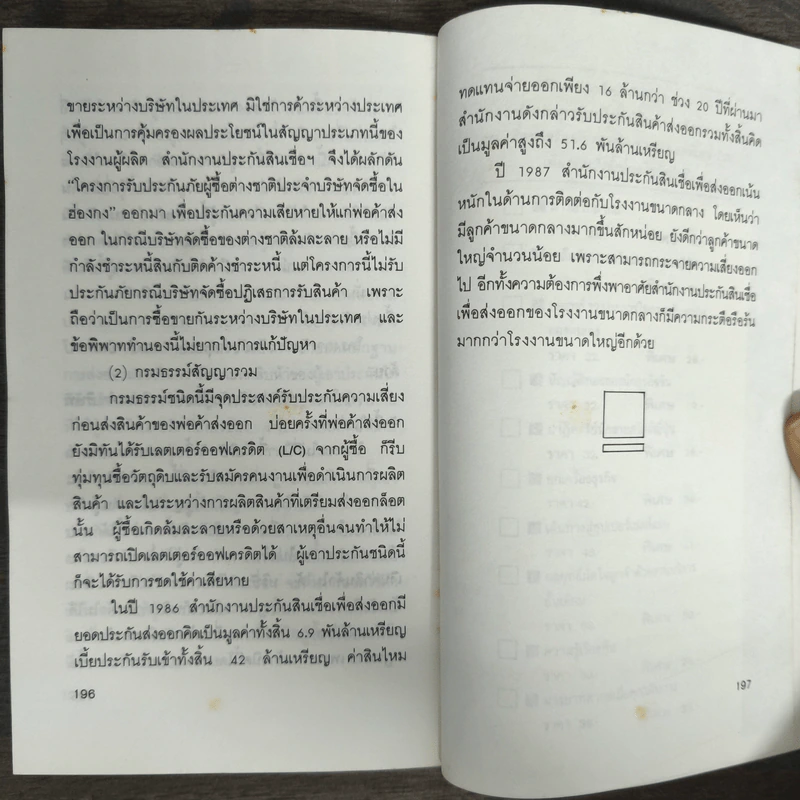 ขายระหว่างบริษัทในประเทศ มิใช่การค้าระหว่างประเทศ
เพื่อเป็นการคุ้มครองผลประโยชน์ในสัญญาประเภทนี้ของ
โรงงานผู้ผลิต สำนักงานประกันสินเชื่อฯ จึงได้ผลักดัน
“โครงการรับประกันภัยผู้ซื้อต่างชาติประจำบริษัทจัดซื้อใน
ฮ่องกง” ออกมา เพื่อประกันความเสียหายให้แก่พ่อค้าส่ง
ออก ในกรณีบริษัทจัดซื้อของต่างชาติล้มละลาย หรือไม่มี
กำลังชำระหนี้สินกับติดค้างชำระหนี้ แต่โครงการนี้ไม่รับ
ประกันภัยกรณีบริษัทจัดซื้อปฏิเสธการรับสินค้า เพราะ
ถือว่าเป็นการซื้อขายกันระหว่างบริษัทในประเทศ และ
ข้อพิพาททำนองนี้ไม่ยากในการแก้ปัญหา
(2) กรมธรรม์สัญญารวม
กรมธรรม์ชนิดนี้มีจุดประสงค์รับประกันความเสี่ยง
ก่อนส่งสินค้าของพ่อค้าส่งออก บ่อยครั้งที่พ่อค้าส่งออก
ยังมิทันได้รับเลตเตอร์ออฟเครดิต (L/C) จากผู้ซื้อ ก็รีบ
ทุ่มทุนซื้อวัตถุดิบและรับสมัครคนงานเพื่อดำเนินการผลิต
สินค้า และในระหว่างการผลิตสินค้าที่เตรียมส่งออกล็อต
นั้น ผู้ซื้อเกิดล้มละลายหรือด้วยสาเหตุอื่นจนทำให้ไม่
สามารถเปิดเลตเตอร์ออฟเครดิตได้ ผู้เอาประกันชนิดนี้
ก็จะได้รับการชดใช้ค่าเสียหาย
ในปี 1986 สำนักงานประกันสินเชื่อเพื่อส่งออกมี
ยอดประกันส่งออกคิดเป็นมูลค่าทั้งสิ้น 6.9 พันล้านเหรียญ
เบี้ยประกันรับเข้าทั้งสิ้น 42 ล้านเหรียญ ค่าสินไหม
196
ทดแทนจ่ายออกเพียง 16 ล้านกว่า ช่วง 20 ปีที่ผ่านมา
สำนักงานดังกล่าวรับประกันสินค้าส่งออกรวมทั้งสิ้นคิด
เป็นมูลค่าสูงถึง 51.6 พันล้านเหรียญ
ปี 1987 สำนักงานประกันสินเชื่อเพื่อส่งออกเน้น
หนักในด้านการติดต่อกับโรงงานขนาดกลาง โดยเห็นว่า
มีลูกค้าขนาดกลางมากขึ้นสักหน่อย ยังดีกว่าลูกค้าขนาด
ใหญ่จำนวนน้อย เพราะสามารถกระจายความเสี่ยงออก
ไป อีกทั้งความต้องการพึ่งพาอาศัยสำนักงานประกันสินเชื่อ
เพื่อส่งออกของโรงงานขนาดกลางก็มีความกระตือรือร้น
มากกว่าโรงงานขนาดใหญ่อีกด้วย
197